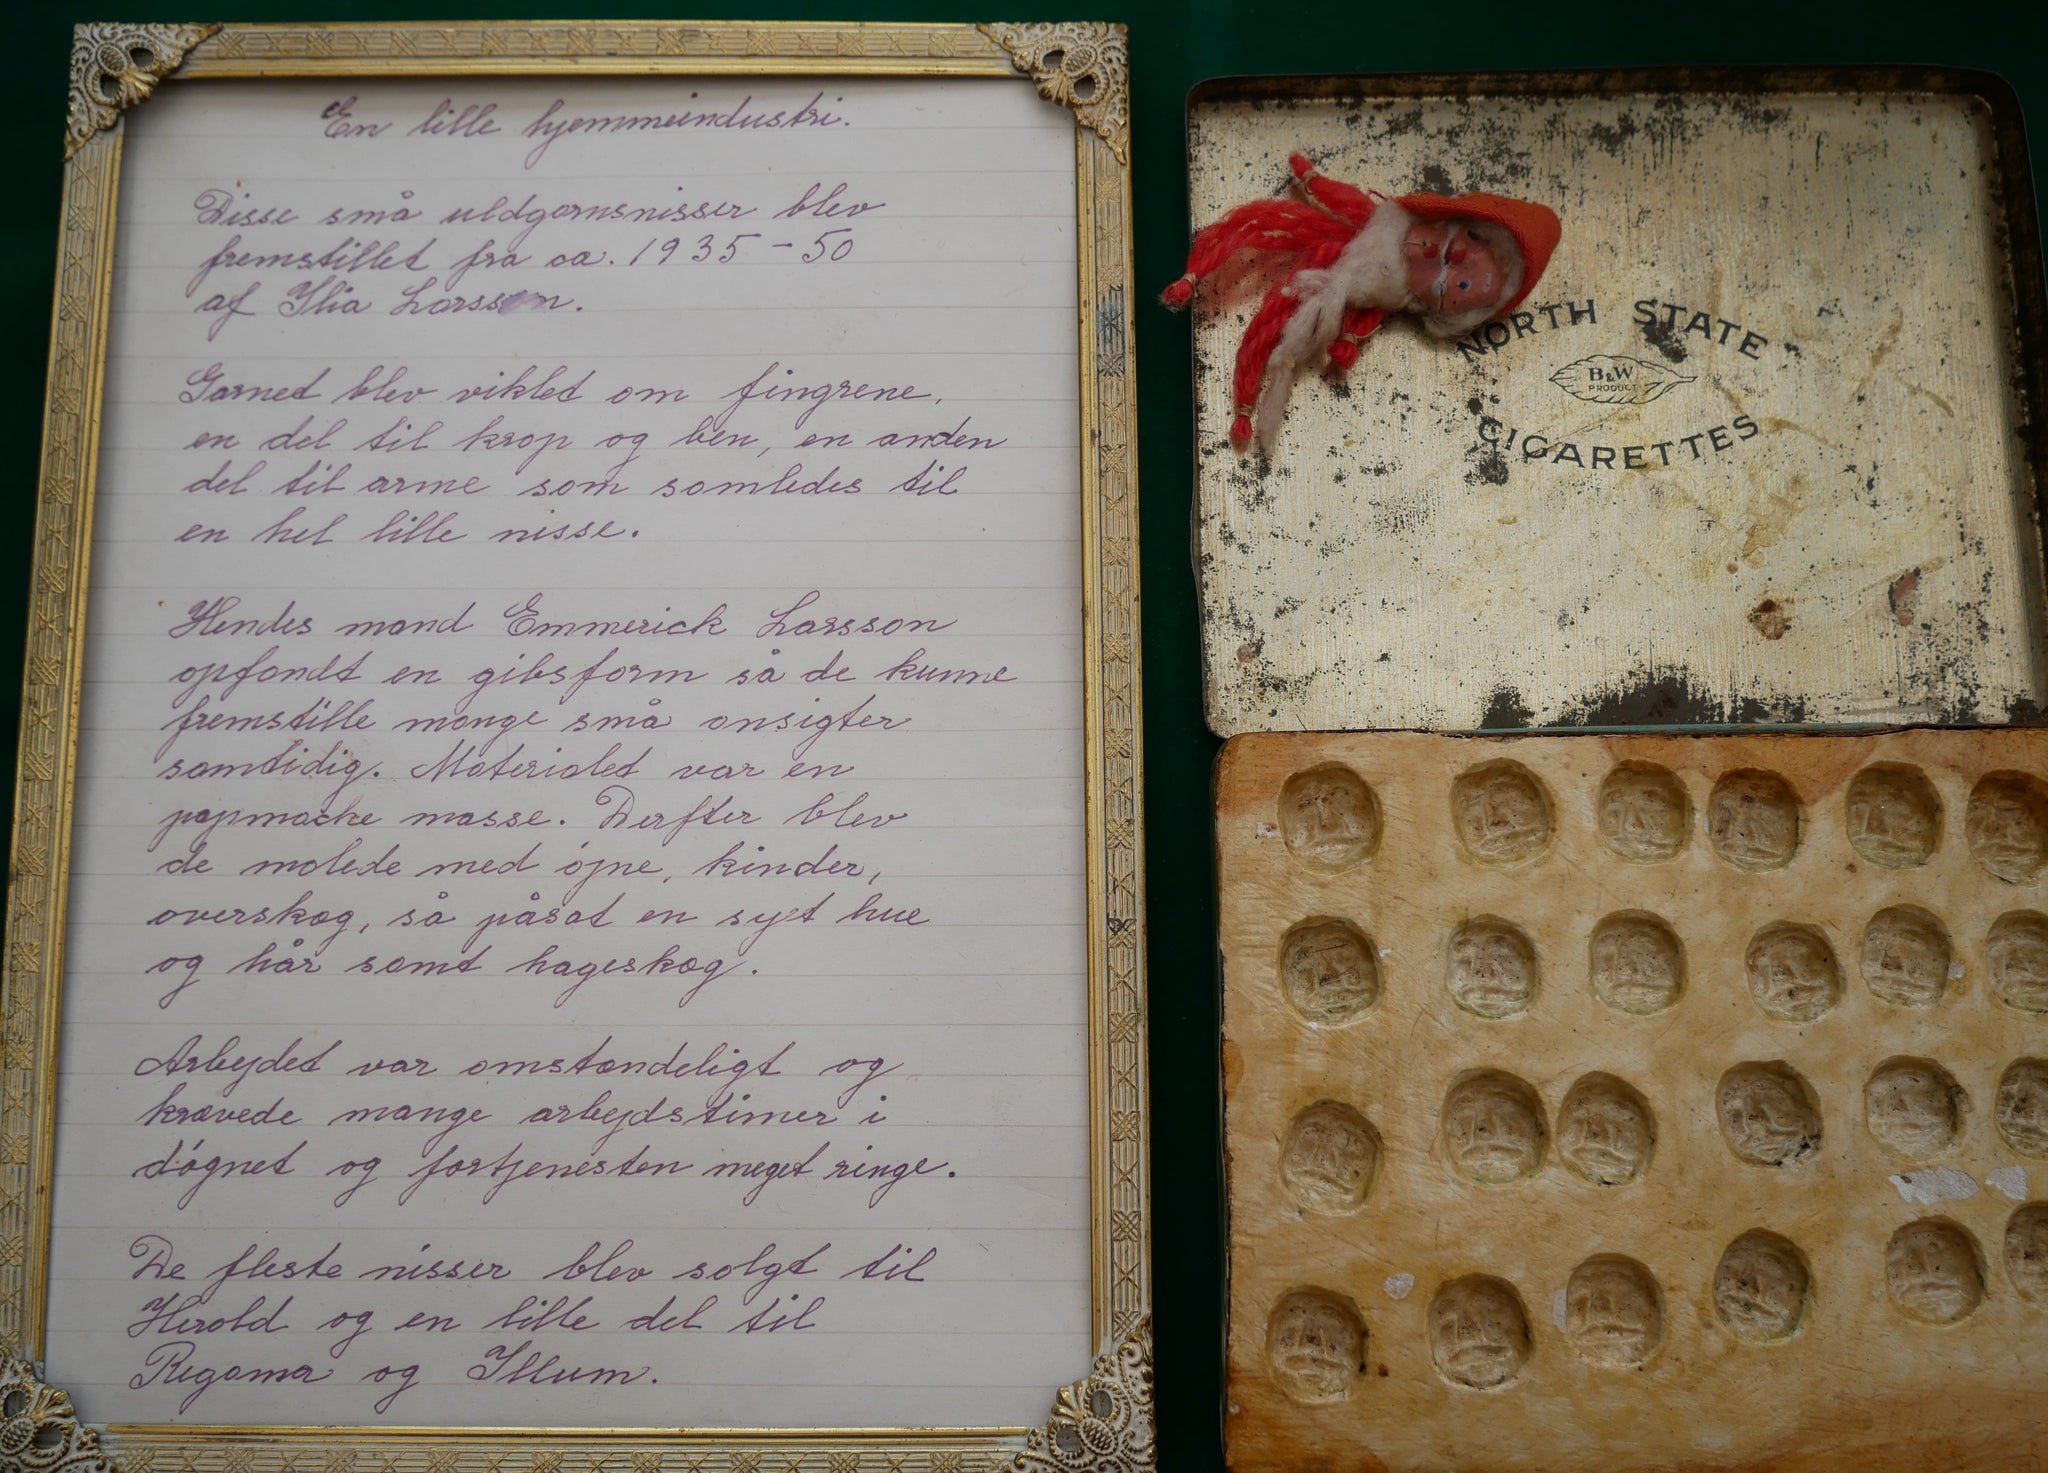 En lille hjemmeindustri.
Disse små uldgarnsnisser blev
fremstillet fra ca. 1935-50
af Ilia Larsson.
Garnet blev viklet om fingrene,
en del til krop og ben, en anden
del til arme som samledes til
en hel lille nisse.
Hendes mand Emmerick Larsson
opfandt en gibsform så de kunne
fremstille mange små ansigter
samtidig. Materialet var en
papmache masse. Derfter blev
de malede med öjne, kinder,
overskæg, så påsat en syet hue
og hår samt hageskæg.
Arbejdet var omstændeligt og
krævede mange arbejdstimer i
dögnet og fortjenesten meget ringe.
De fleste nisser blev solgt til
Herold og en lille del til
Rigoma og Illum.
NORTH STATE
B&W
PRODUCT
CIGARETTES